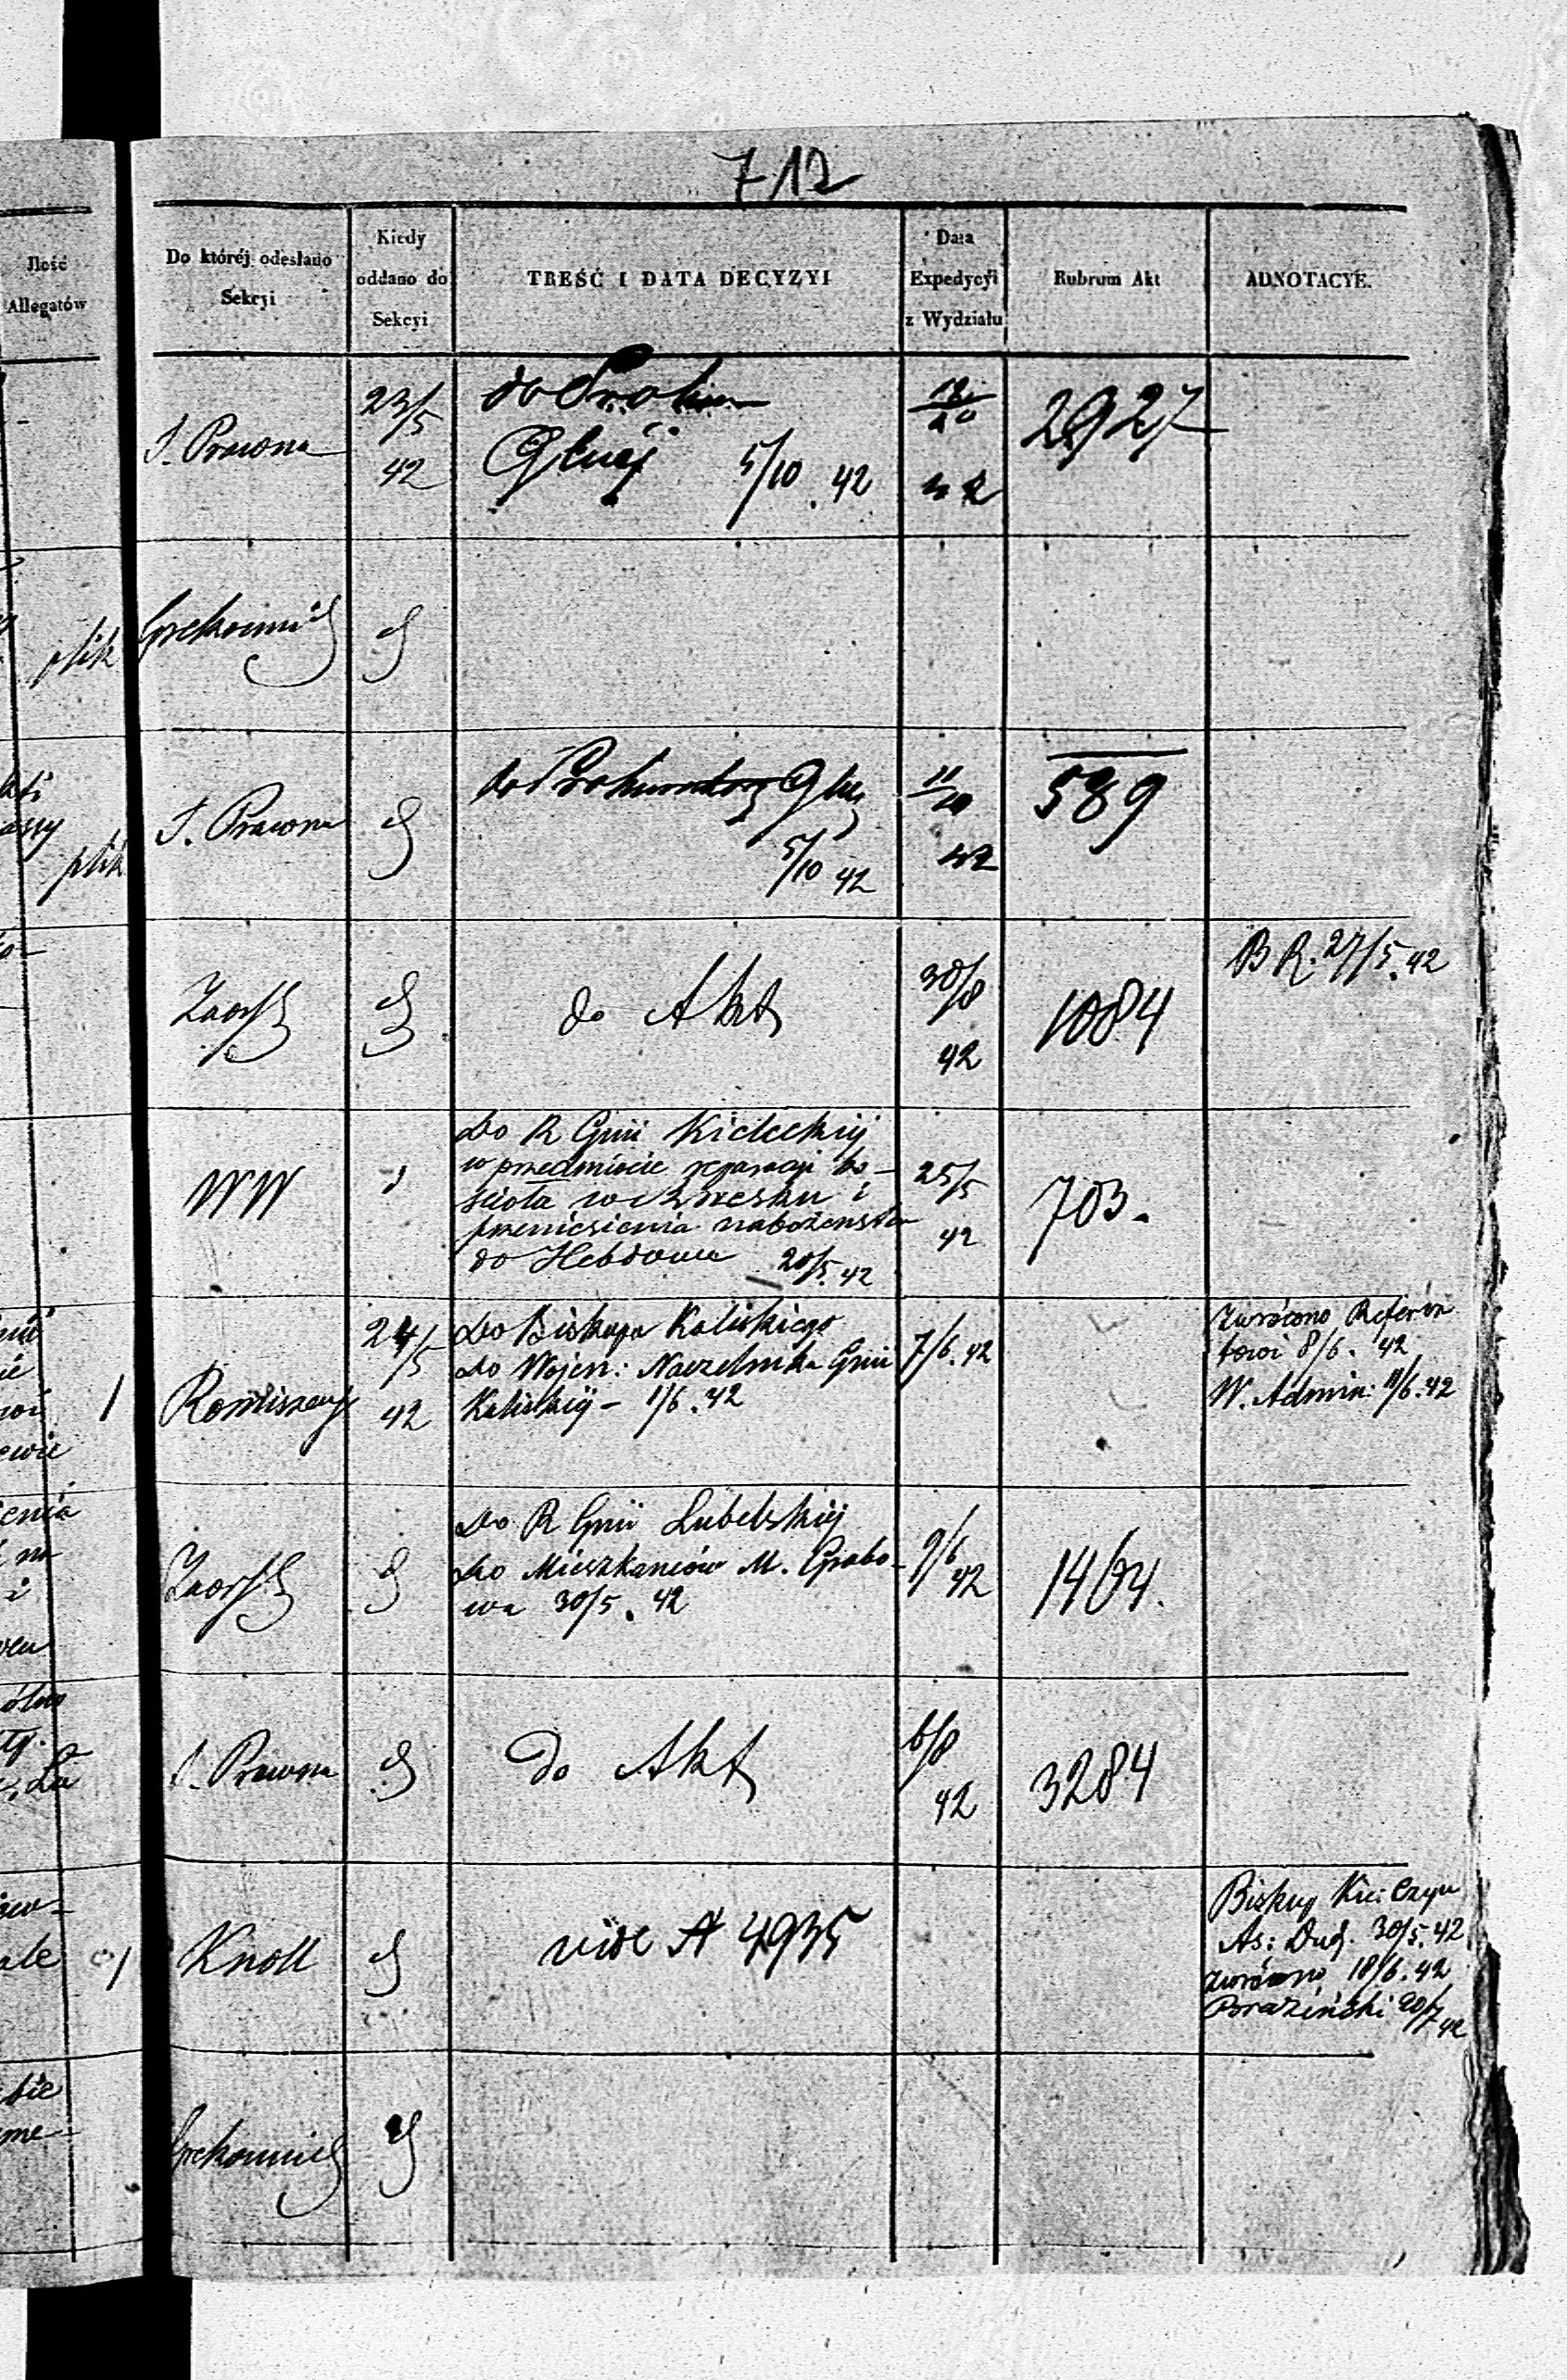 712
Jlość
Allegatów
Do któréj odesłano
Sekcyi
Kiedy
oddano do
Sekcyi
TREŚĆ I DATA DECYZYI
Data
Expedycyi
z Wydziału
Rubrum Akt
ADNOTACYE.
S. Prawna
23/5
42
do Prokur
Glnéj 5/10 . 42
12/10
42
2927
plik
plik
S. Prawna
do Prokuratory Glnéj
5/10 42
11/10
42
589
do Akt
30/8
42
1084
B R. 27/5. 42
WW
do R Gnii Kieleckiéj
w przedmiocie reparacji ko-
scioła w Brzesku i
przeniesienia nabożeństwa
do Hebdowa 20/5. 42
25/5
42
703.
1
24/5
42
do Biskupa Kaliskiego
do Wojen: Naczelnika Gnii
Kaliskiéj - 1/6. 42
7/6. 42
zwrócono Referen
towi 8/6. 42
W. Admin: 11/6. 42
do R Gnii Lubelskiéj
do Mieszkańców M. Grabo-
wa 30/5. 42
9/6
42
S. Prawna
do Akt
6/8
42
3284
Knoll
vide N 4935
Biskup
As: Dud. 30/5. 42
zwrócono 18/6. 42
Braziński 20/7 42